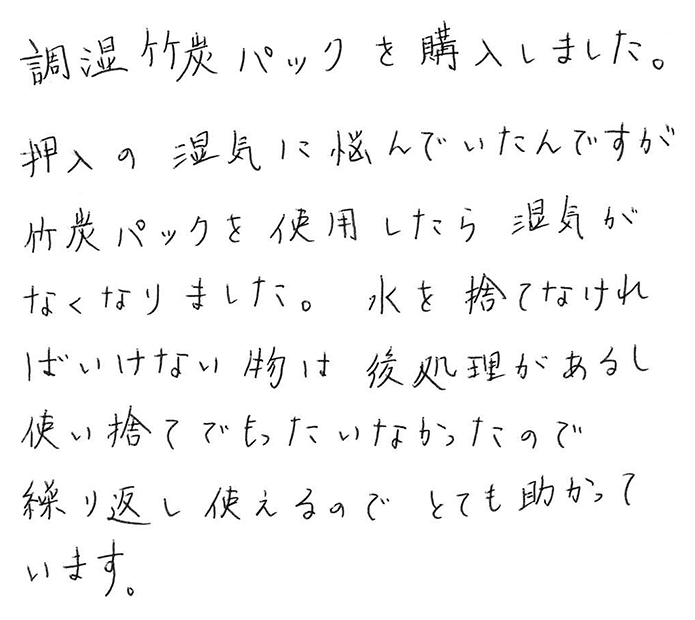 調湿竹炭パックを購入しました。
押入の湿気に悩んでいたんですが
竹炭パックを使用したら湿気が
なくなりました。水を捨てなけれ
ばいけない物は後処理があるし
使い捨てでもったいなかったので
繰り返し使えるのでとても助かって
います。